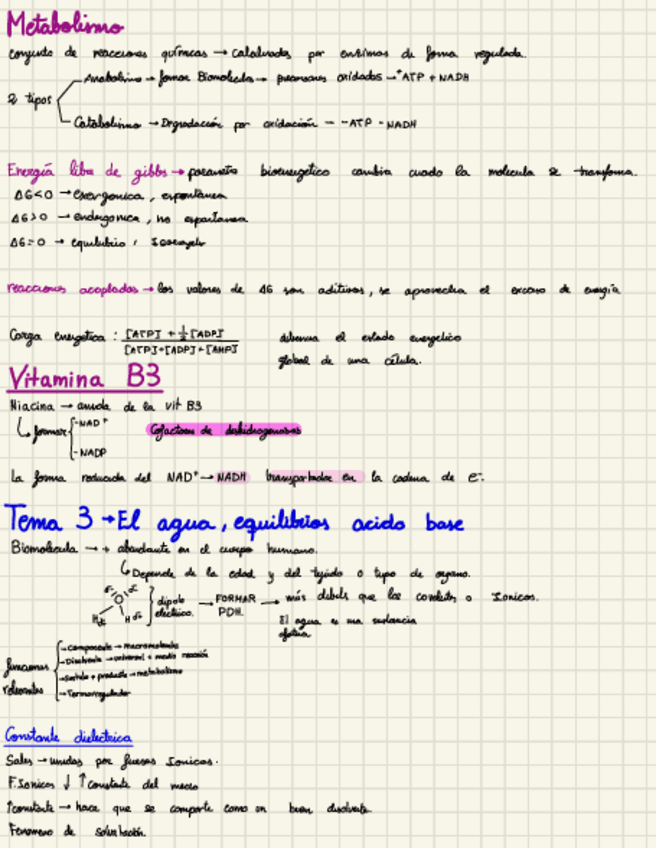 Metabolismo
conjunto de reacciones químicas → catalizadas por enzimas de forma regulada.
Anabolismo → formar Biomolecula → precursores oxidados → +ATP + NADH
2 tipos
Catabolismo → Degradación por oxidación - -ATP - NADH
Energía libre de gibbs → parametro bioenergetico cambia cuado la molecula se transforma.
ΔG<0 → exergonica, espontanea
ΔG>0 → endergonica, no espontanea
ΔG=0 → equilibrio,
reacciones acopladas → los valores de ΔG son aditivos, se aprovecha el exceso de energía
Carga energetica: [ATP] + ½[ADP] / [ATP]+[ADP]+[AMP]
el estado energetico
global de una célula.
Vitamina B3
Niacina → amida de la vit B3
formar -NAD+
-NADP
Cofactores de deshidrogenasas
La forma reducida del NAD+ → NADH transportador en la cadena de e-.
Tema 3 → El agua, equilibrios acido base
Biomolecula → + abundante en el cuerpo humano.
Depende de la edad y del tejido o tipo de organo.
O H H
dipolo electrico. → FORMAR PDH. → más debils que los covalents o Ionicos.
El agua es una sustancia
funciones relevantes
-Componente → macromoleculas
-Disolvente → universal + medio reacción
-Sustrato + producto → metabolismo
-Termorregulador
Constante dielectrica
Sales → unidas por fuerzas Ionicas.
F.Ionicas ↓ ↑constante del medio
↑constante → hace que se comporte como un buen disolvente.
Fenomeno de solvatación.